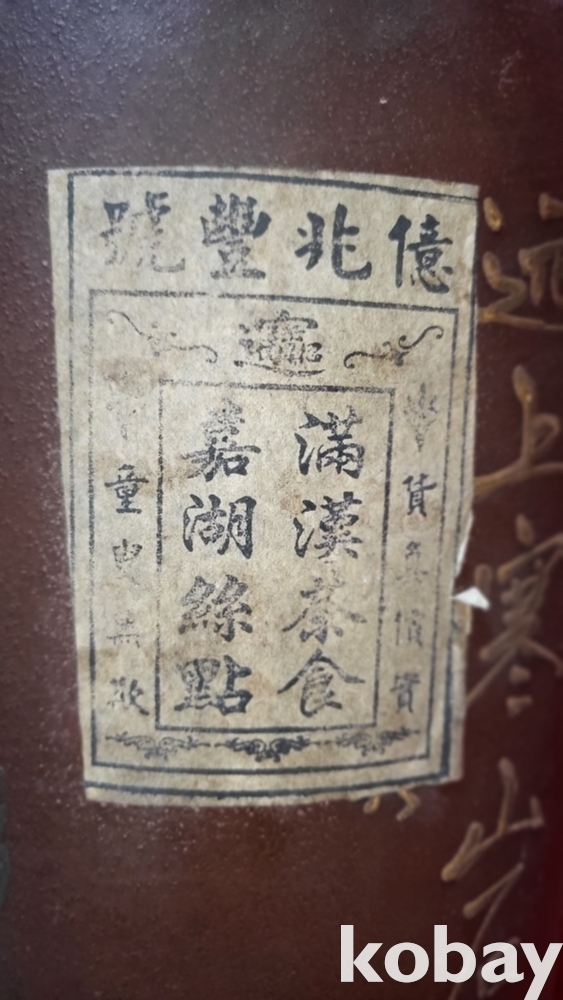 億兆豐號
滿漢茶食
嘉湖絲點
貨真價實
童叟無欺
遠上寒山
kobay